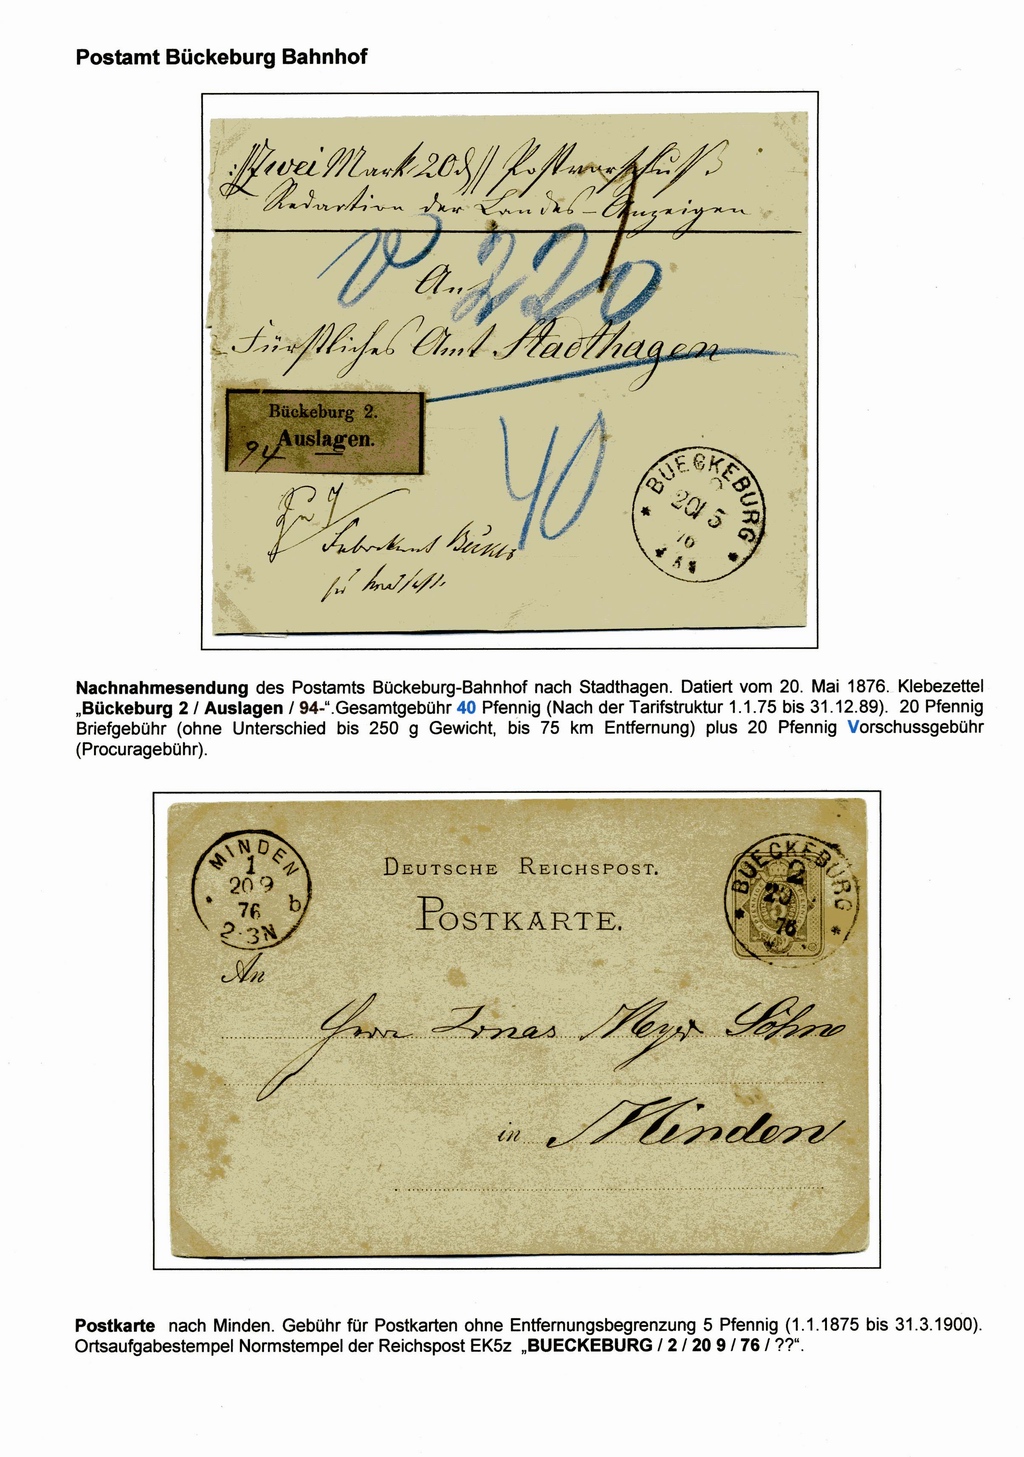 Postamt Bückeburg Bahnhof
:// Zwei Mark 20 ₰ // Postvorschuß
Redaction der Landes-Anzeigen
V 220
An
Fürstliches Amt Stadthagen
Bückeburg 2.
94 Auslagen.
40
BUECKEBURG
2
20/5
76
Nachnahmesendung des Postamts Bückeburg-Bahnhof nach Stadthagen. Datiert vom 20. Mai 1876. Klebezettel
„Bückeburg 2 / Auslagen / 94-“.Gesamtgebühr 40 Pfennig (Nach der Tarifstruktur 1.1.75 bis 31.12.89). 20 Pfennig
Briefgebühr (ohne Unterschied bis 250 g Gewicht, bis 75 km Entfernung) plus 20 Pfennig Vorschussgebühr
(Procuragebühr).
MINDEN
1
20 9
76 b
2-3N
DEUTSCHE REICHSPOST.
POSTKARTE.
BUECKEBURG
2
20
76
An
Herrn Jonas Meyer Söhne
in Minden
Postkarte nach Minden. Gebühr für Postkarten ohne Entfernungsbegrenzung 5 Pfennig (1.1.1875 bis 31.3.1900).
Ortsaufgabestempel Normstempel der Reichspost EK5z „BUECKEBURG / 2 / 20 9 / 76 / ??“.